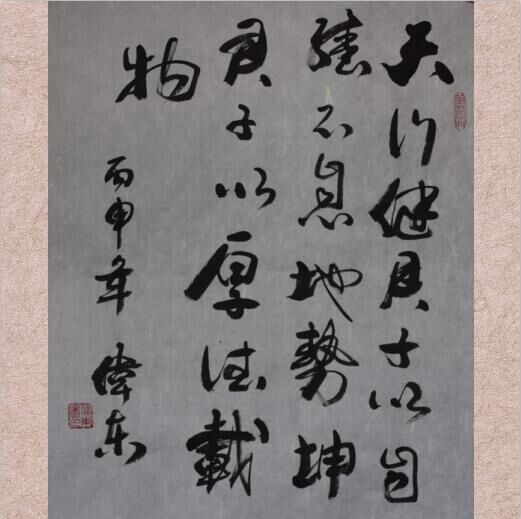 天行健君子以自
強不息地勢坤
君子以厚德載
物
丙申年 偉东